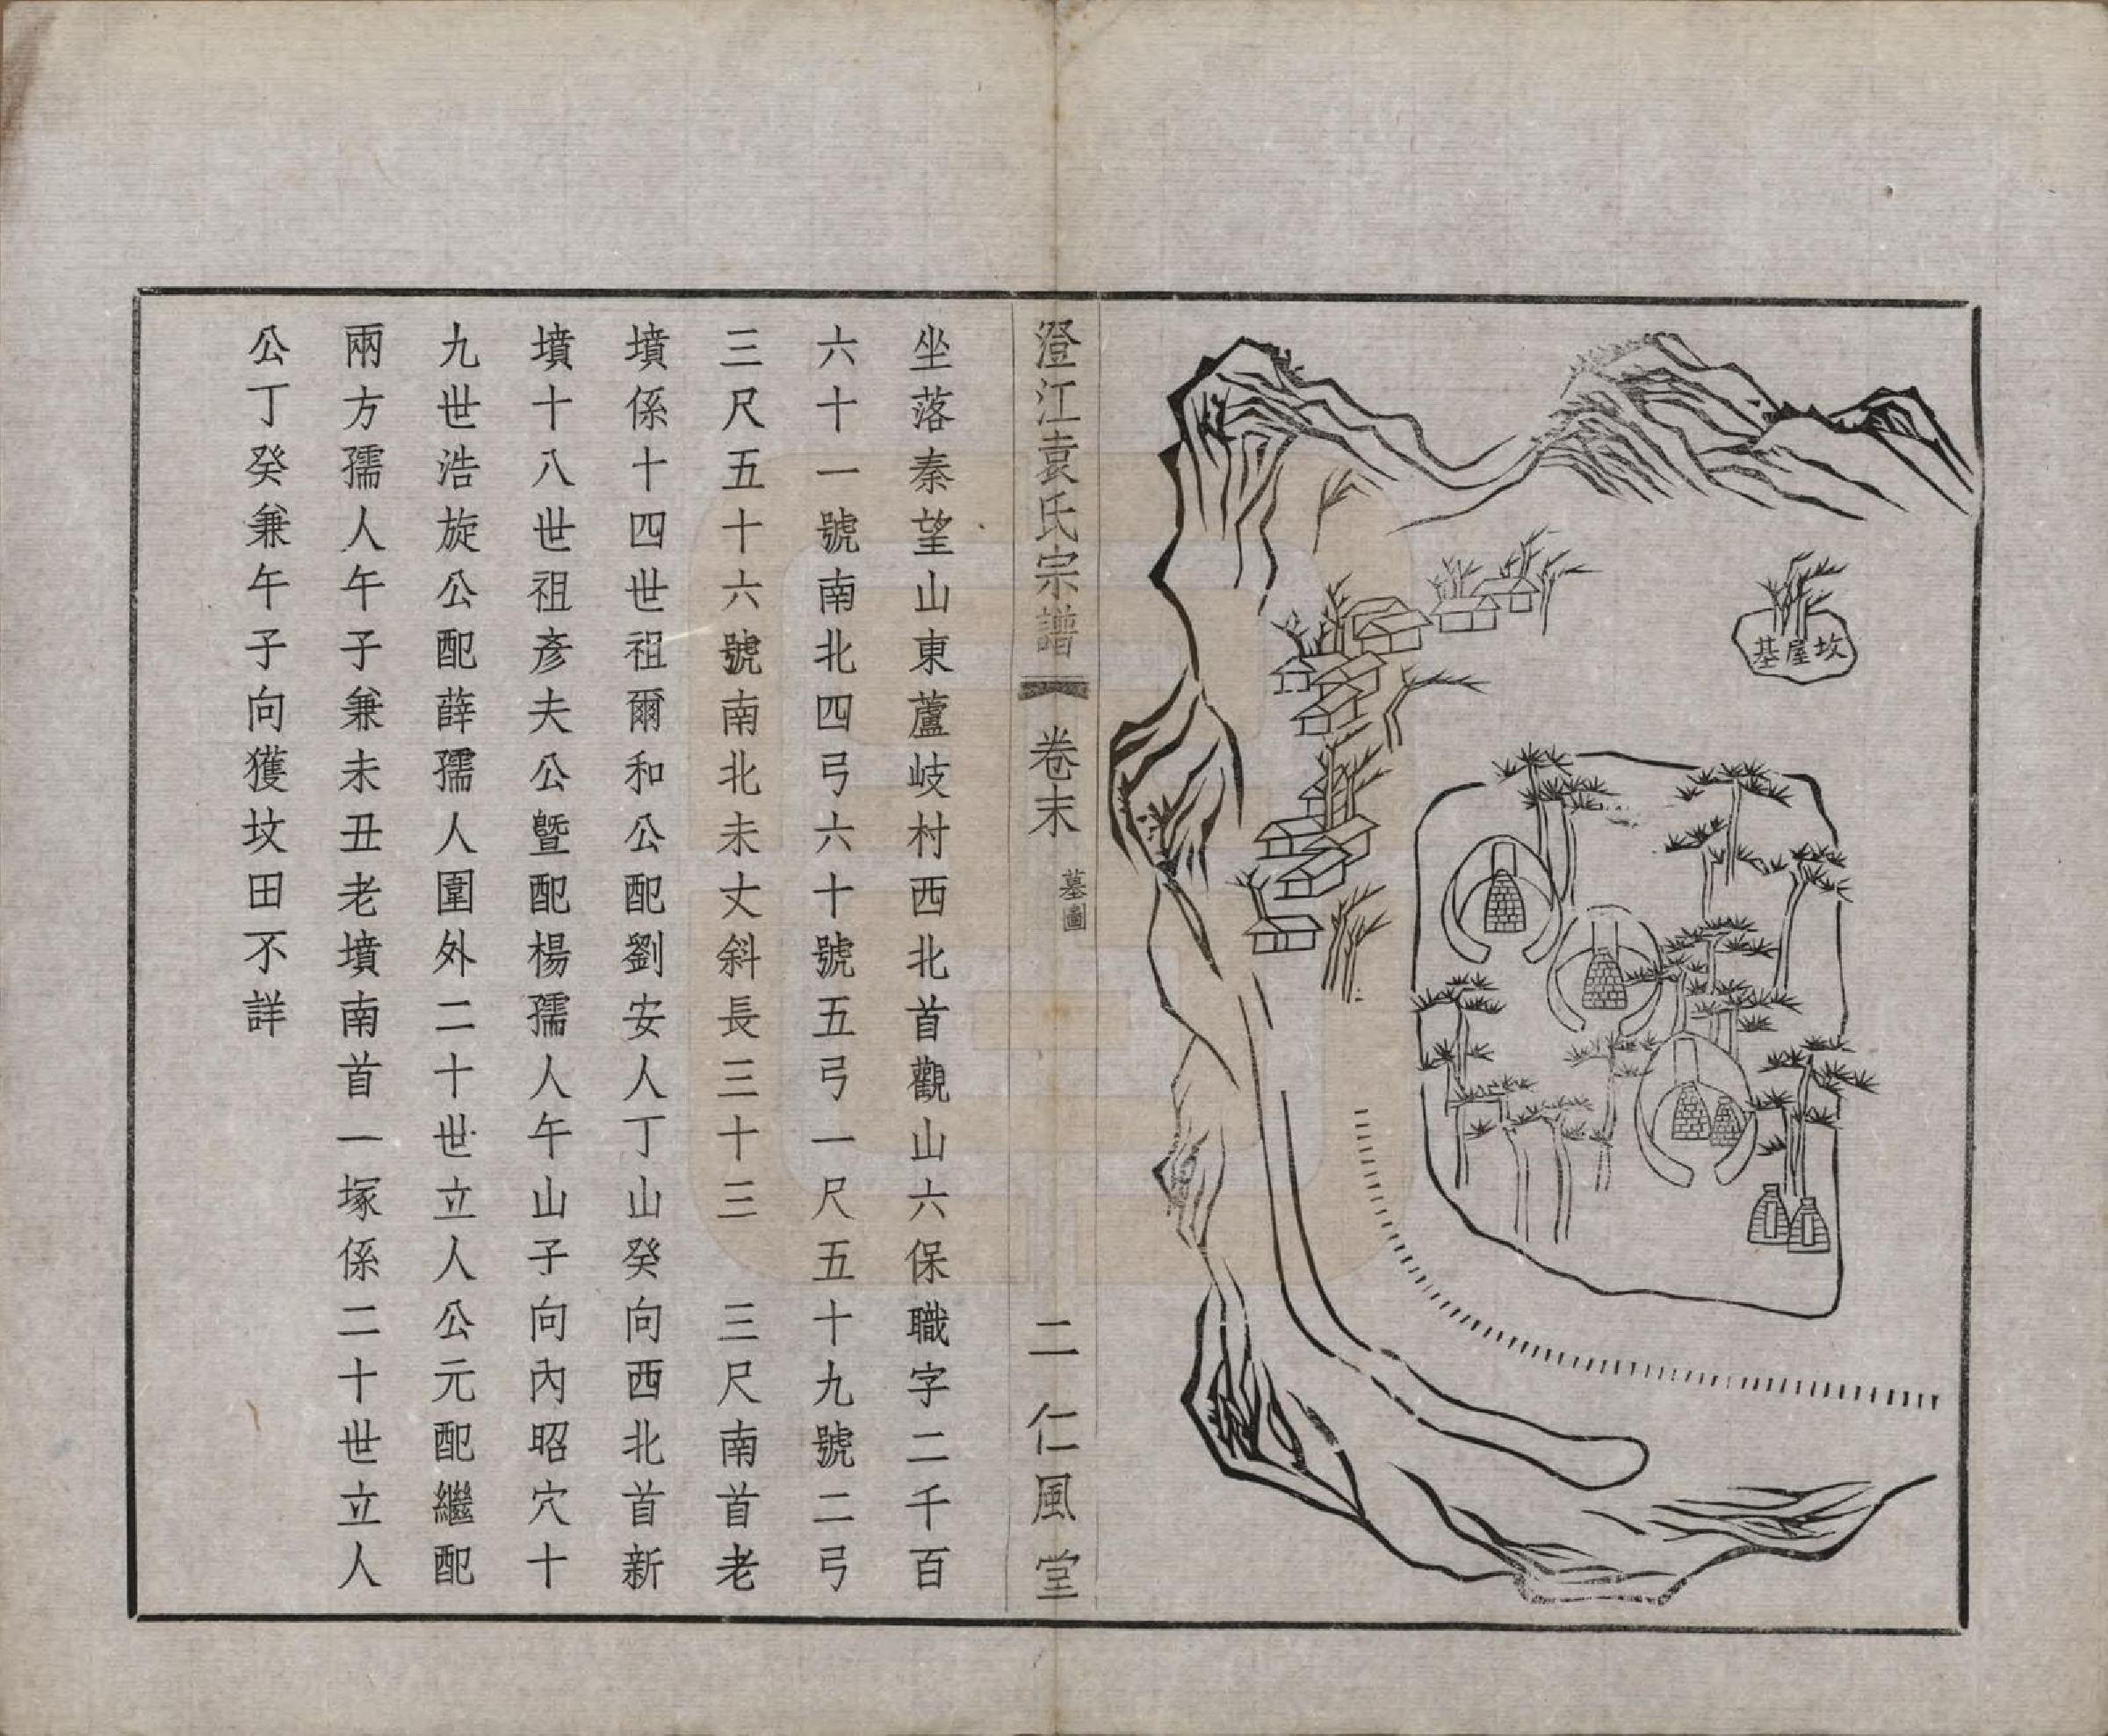 坟屋基
澄江袁氏宗譜
卷末
墓圖
二
仁風堂
坐落秦望山東蘆岐村西北首觀山六保職字二千百
六十一號南北四弓六十號五弓一尺五十九號二弓
三尺五十六號南北未丈斜長三十三 三尺南首老
墳係十四世祖爾和公配劉安人丁山癸向西北首新
墳十八世祖彥夫公暨配楊孺人午山子向內昭穴十
九世浩旋公配薛孺人圍外二十世立人公元配繼配
兩方孺人午子兼未丑老墳南首一塚係二十世立人
公丁癸兼午子向獲坟田不詳